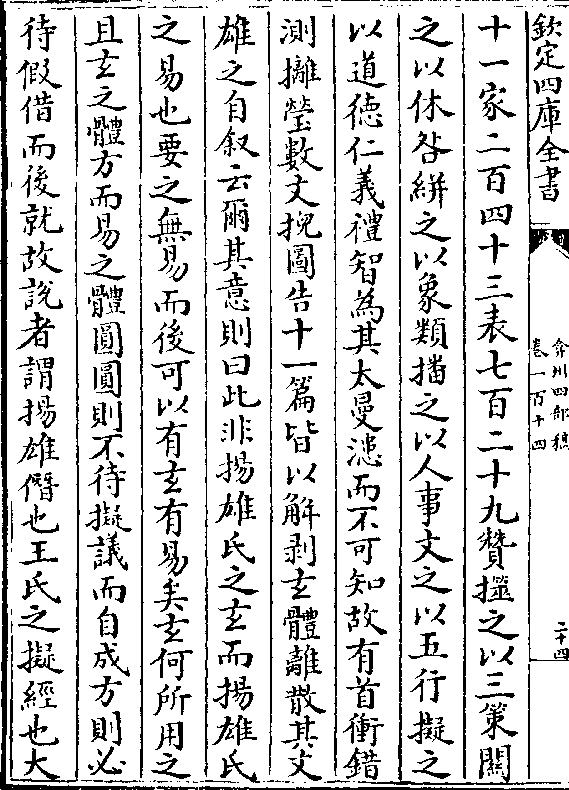 欽定四庫全書
弇州四部稿
卷一百十四
二十四
十一家二百四十三表七百二十九贊揲之以三策關
之以休咎絣之以象類播之以人事文之以五行擬之
以道德仁義禮智為其太曼漶而不可知故有首衝錯
測攡瑩數文掜圖告十一篇皆以解剥玄體離散其文
雄之自叙云爾其意則曰此非揚雄氏之玄而揚雄氏
之易也要之無易而後可以有玄有易矣玄何所用之
且玄之體方而易之體圓圓則不待擬議而自成方則必
待假借而後就故說者謂揚雄僭也王氏之擬經也大